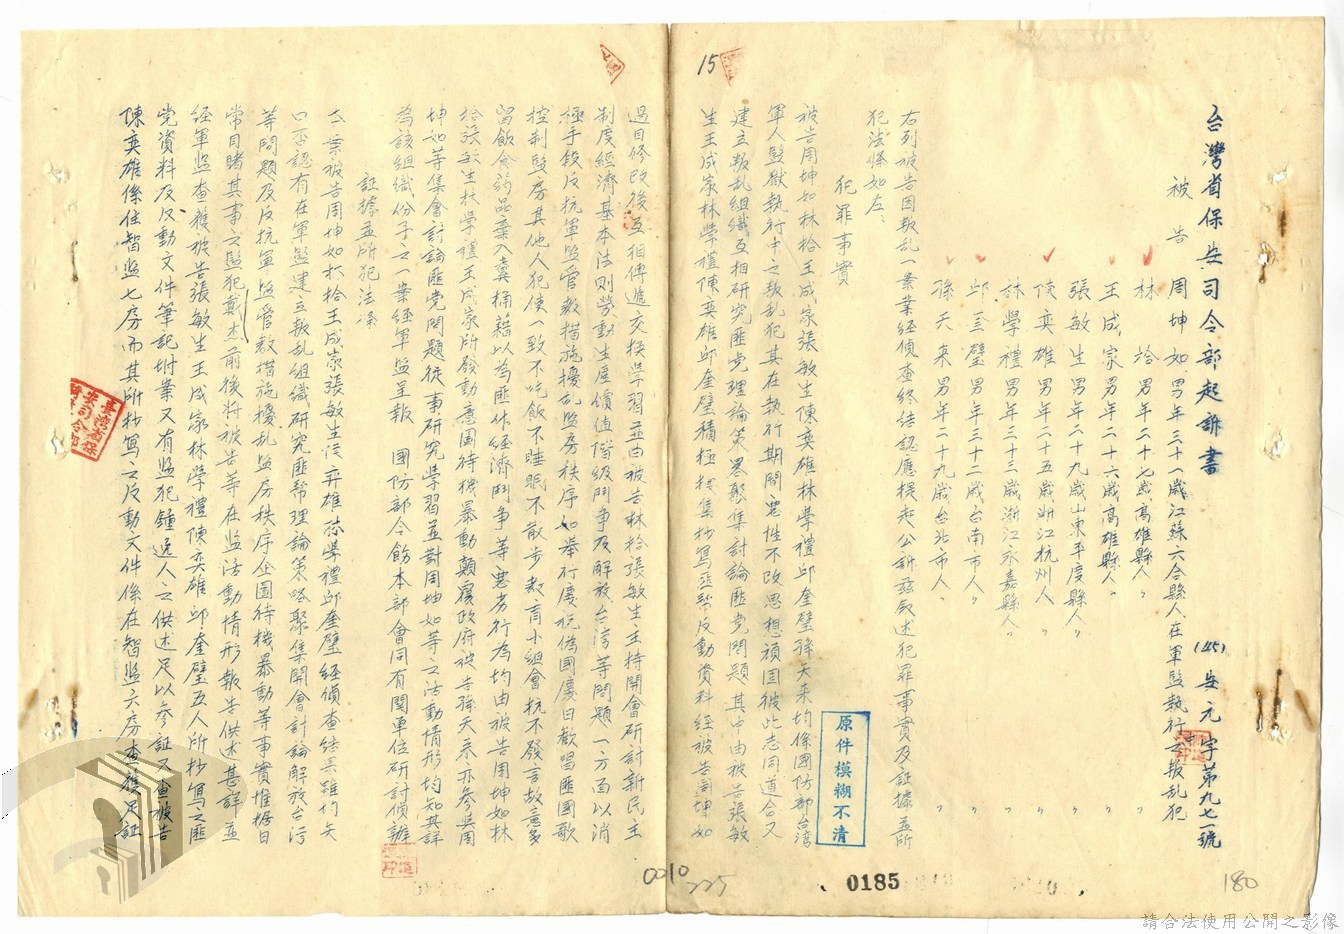 台灣省保安司令部起訴書
(45)安元字第九七一號
被告 周坤如 男年三十一歲江蘇六合縣人在軍監執行之叛乱犯
林 拾 男年二十七歲高雄縣人 〃
王成家 男年二十六歲高雄縣人 〃
張敏生 男年二十九歲山東平度縣人 〃
陳奕雄 男年二十五歲浙江杭州人 〃
林學禮 男年三十三歲浙江永嘉縣人 〃
邱奎璧 男年三十二歲台南市人 〃
孫天来 男年二十九歲台北市人 〃
右列被告因叛乱一案業經偵查終結認應提起公訴茲敘述犯罪事實及証據並所
犯法條如左、
犯罪事實
被告周坤如林拾王成家張敏生陳奕雄林學禮邱奎璧孫天来均係國防部台灣
軍人監獄執行中之叛乱犯其在執行期間惡性不改思想頑固彼此志同道合又
建立叛乱組織互相研究匪党理論策畧聚集討論匪党問題其中由被告張敏
生王成家林學禮陳奕雄邱奎璧積極搜集抄寫匪幫反動資料經被告周坤如
過目修改後互相傳遞交換學習並由被告林拾張敏生主持開會研討新民主
制度經濟基本法則勞動生產價值階級鬥争及解放台湾等問題一方面以消
極手段反抗軍監管教措施擾乱監房秩序如举行慶祝偽國慶日歡唱匪國歌
控制監房其他人犯使一致不吃飯不睡眠不散步教育小組會抗不發言故意多
留飲食物品棄入糞桶藉以為匪作經濟鬥争等惡劣行為均由被告周坤如林
拾張敏生林學禮王成家所發動意圖待機暴動顛覆政府被告孫天来亦參與周
坤如等集會討論匪党問題從事研究學習並對周坤如等之活動情形均知其詳
為該組織份子之一案經軍監呈報 國防部令飭本部會同有関單位研討偵辦
証據並所犯法條
本案被告周坤如林拾王成家張敏生陳奕雄林學禮邱奎璧經偵查結果雖均矢
口否認有在軍監建立叛乱組織研究匪幫理論策略聚集開會討論解放台湾
等問題及反抗軍監管教措施擾乱監房秩序企圖待機暴動等事實惟據目
常目睹其事之監犯戴杰前後將被告等在監活動情形報告供述甚詳並
經軍監查獲被告張敏生王成家林學禮陳奕雄邱奎璧五人所抄寫之匪
党資料及反動文件筆記附案又有監犯鍾逸人之供述足以參証又查被告
陳奕雄係住智監七房而其所抄寫之反動文件係在智監六房查獲足証
原件模糊不清
15
0185
0010
225
180
請合法使用公開之影像